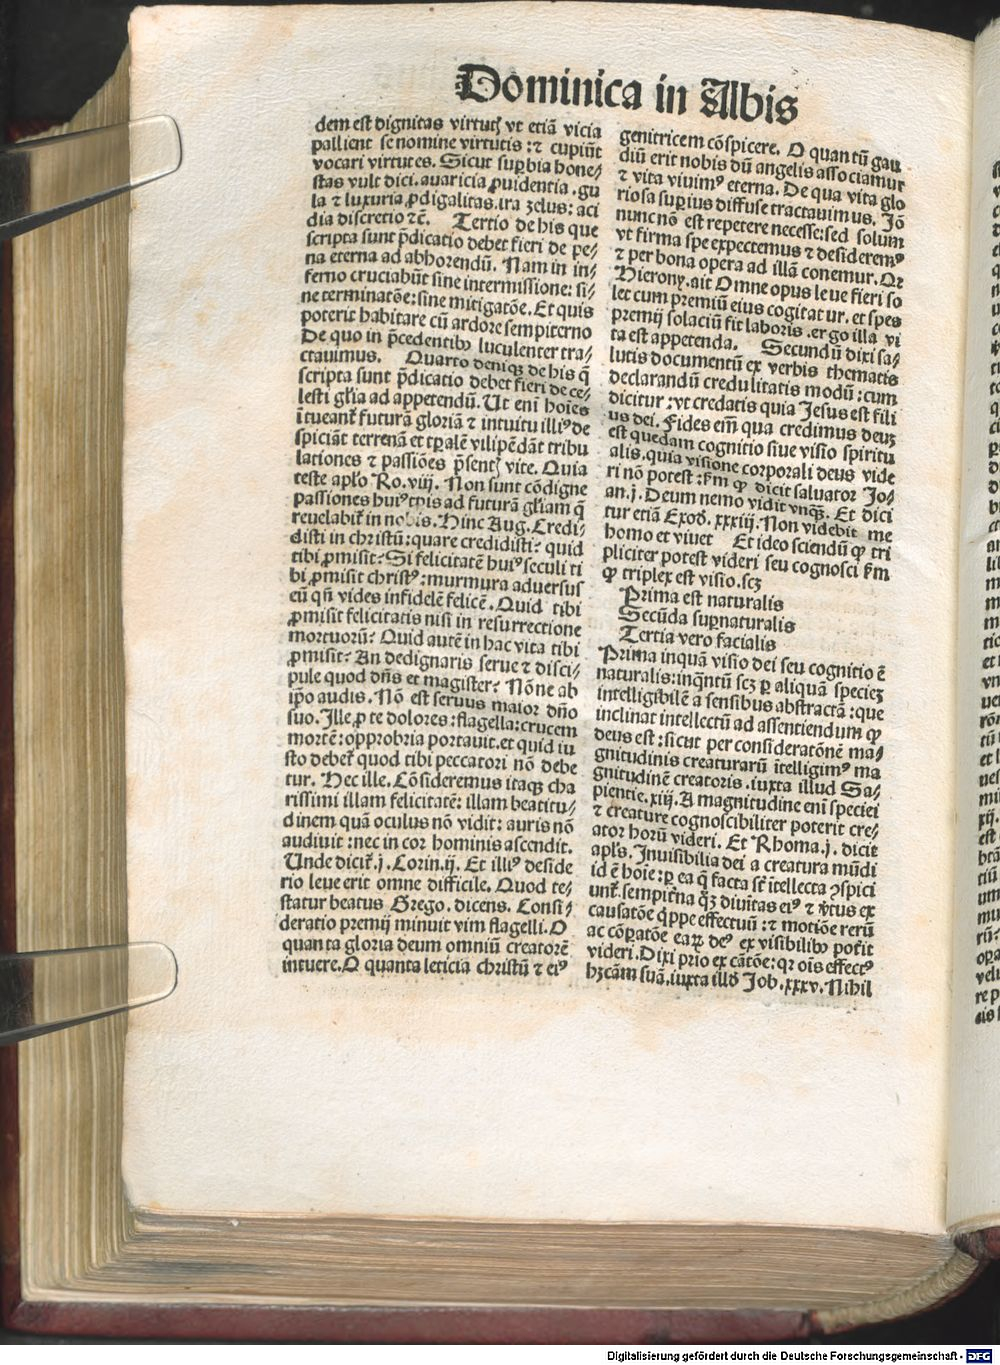 Dominica in Albis
dem est dignitas virtutꝭ vt etiã vicia
pallient se nomine virtutis : ⁊ cupiũt
vocari virtutes. Sicut suꝑbia hone⸗
stas vult dici. auaricia ꝓuidentia . gu
la ⁊ luxuria ꝓdigalitas. ira zelus: aci
dia discretio ⁊c̃. Tertio de his que
scripta sunt p̃dicatio debet fieri de pe⸗
na eterna ad abhorendũ. Nam in in⸗
ferno cruciabũt sine intermissione: si⸗
ne terminatõe: sine mitigatõe. Et quis
poterit habitare cũ ardore sempiterno
De quo in p̃cedentibꝰ luculenter tra⸗
ctauimus. Quarto deniqꝫ de his q̃
scripta sunt p̃dicatio debet fieri de ce⸗
lesti gl̃ia ad appetendũ. Ut eni hoĩes
ĩtueant᷑ futurã gloriã ⁊ intuitu illiꝰ de
spiciãt terrenã et tp̃alẽ vilipẽdãt tribu
lationes ⁊ passiões p̃sentꝭ vite. Quia
teste apl̃o Ro. viij. Non sunt cõdigne
passiones huiꝰ tp̃is ad futurã gl̃iam q̃
reuelabit᷑ in nobis. Hinc Aug. Credi⸗
disti in christũ: quare credidisti? quid
tibi ꝓmisit? Si felicitatẽ huiꝰ seculi ti
bi ꝓmisit christꝰ : murmura aduersus
eũ qñ vides infidelẽ felicẽ. Quid tibi
ꝓmisit felicitatis nisi in resurrectione
mortuorũ? Quid autẽ in hac vita tibi
ꝓmisit? An dedignaris serue ⁊ disci⸗
pule quod dñs et magister? Nõne ab
ip̃o audis. Nõ est seruus maior dño
suo. Ille ꝓ te dolores : flagella: crucem
mortẽ: opprobria portauit. et quid iu
sto debet᷑ quod tibi peccatori nõ debe
tur. Hec ille. Cõsideremus itaqꝫ cha
rissimi illam felicitatẽ: illam beatitu⸗
dinem quã oculus nõ vidit: auris nõ
audiuit : nec in cor hominis ascendit.
Unde dicit᷑ .j. Corin. ij. Et illiꝰ deside
rio leue erit omne difficile. Quod te⸗
statur beatus Grego. dicens. Consi⸗
deratio premij minuit vim flagelli. O
quanta gloria deum omniũ creatorẽ
intuere. O quanta leticia christũ ⁊ eiꝰ
genitricem cõspicere. O quantũ gau
diũ erit nobis dũ angelis associamur
⁊ vita viuimꝰ eterna. De qua vita glo
riosa suꝑius diffuse tractauimus. Iõ
nunc nõ est repetere necesse: sed solum
vt firma spe expectemus ⁊ desideremꝰ
⁊ per bona opera ad illã conemur. Qꝛ
Hierony. ait Omne opus leue fieri so
let cum premiũ eius cogitatur. et spes
premij solaciũ fit laboris . ergo illa vi
ta est appetenda. Secundũ dixi sa⸗
lutis documentũ ex verbis thematis
declarandũ credulitatis modũ : cum
dicitur : vt credatis quia Jesus est fili
us dei. Fides em̃ qua credimus deuꝫ
est quedam cognitio siue visio spiritu
alis. quia visione corporali deus vide
ri nõ potest : ẜm ꝙ dicit saluator Jo⸗
an. j. Deum nemo vidit vnqꝫ. Et dici
tur etiã Exod. xxxiij. Non videbit me
homo et viuet Et ideo sciendũ ꝙ tri
pliciter potest videri seu cognosci ẜm
ꝙ triplex est visio. scꝫ
Prima est naturalis
Secũda suꝑnaturalis
Tertia vero facialis
Prima inquã visio dei seu cognitio ẽ
naturalis: inq̃ntũ scꝫ ꝑ aliquã specieꝫ
intelligibilẽ a sensibus abstractã : que
inclinat intellectũ ad assentiendum ꝙ
deus est : sicut per consideratõnẽ ma⸗
gnitudinis creaturarũ ĩtelligimꝰ ma
gnitudinẽ creatoris . iuxta illud Sa⸗
pientie. xiij. A magnitudine eni speciei
⁊ creature cognoscibiliter poterit cre⸗
ator horũ videri. Et Rhoma. j. dicit
apl̃s. Inuisibilia dei a creatura mũdi
id ẽ hoĩe : ꝑ ea q̃ facta sũt ĩtellecta ꝯspici
unt᷑. sempit̃na qꝫ diuĩtas eiꝰ ⁊ v̾tus ex
causatõe q̃ppe effectuũ : ⁊ motiõe rerũ
ac cõꝑatõe eaꝝ deꝰ ex visibilibꝰ pot̃it
videri. Dixi prĩo ex cãtõe: qꝛ oĩs effectꝰ
hꝫ cãm suã. iuxta illd̾ Job. xxxv. Nihil
Digitalisierung gefördert durch die Deutsche Forschungsgemeinschaft - DFG